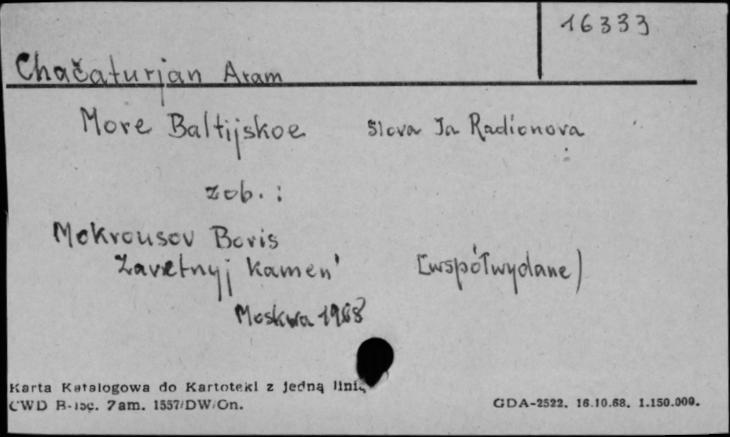 16333
Chačaturjan Aram
More Baltijskoe Slova Ja Radionova
zob. :
Mokrousov Boris
Zavetnyj Kamen' [współwydane)
Moskwa 1968
Karta Katalogowa do Kartoteki z jedną linią
CWD Zam. 1557/DW/On.
GDA-2522. 16.10.68. 1.150.000.